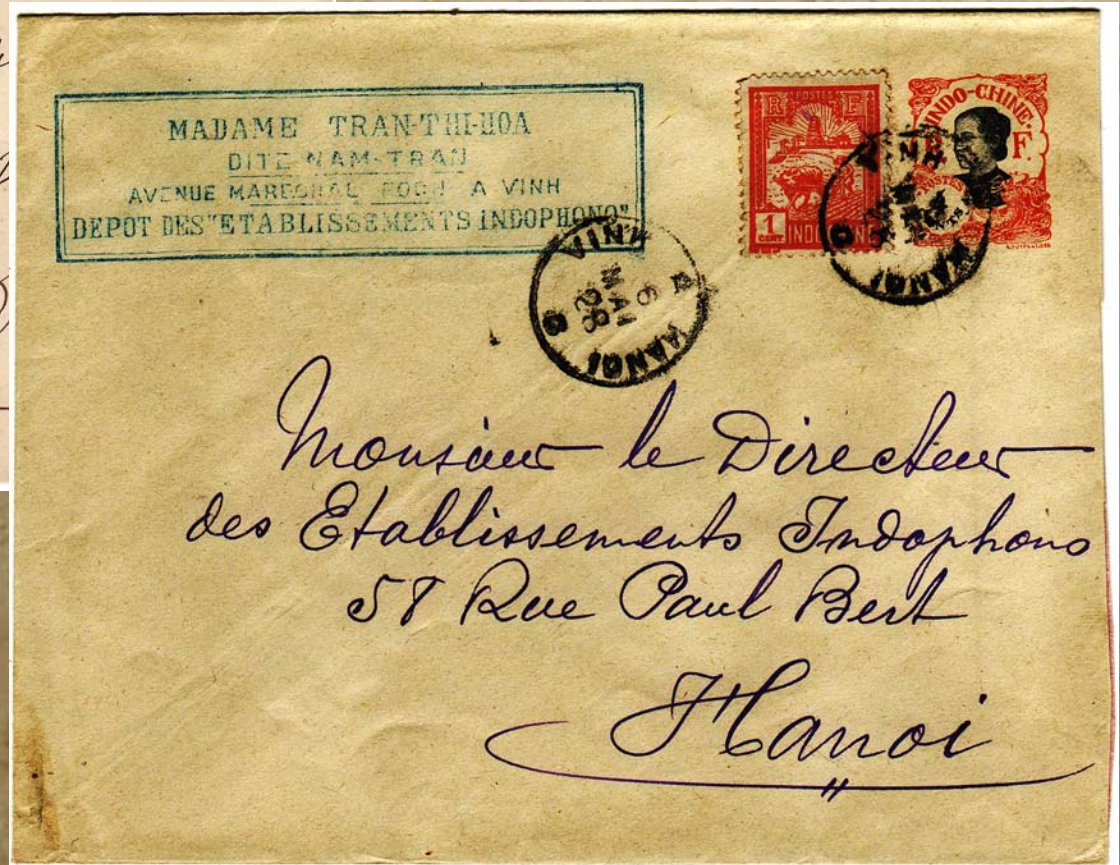 MADAME TRAN-THI-HOA
DITE NAM-TRAN
AVENUE MARECHAL FOCH A VINH
DEPOT DES "ETABLISSEMENTS INDOPHONO"
R POSTES F
1 CENT INDOCHINE
INDO-CHINE
R F
POSTES
VINH A HANOI
6 MAI 28
VINH A HANOI
Monsieur le Directeur
des Etablissements Indophono
58 Rue Paul Bert
Hanoi